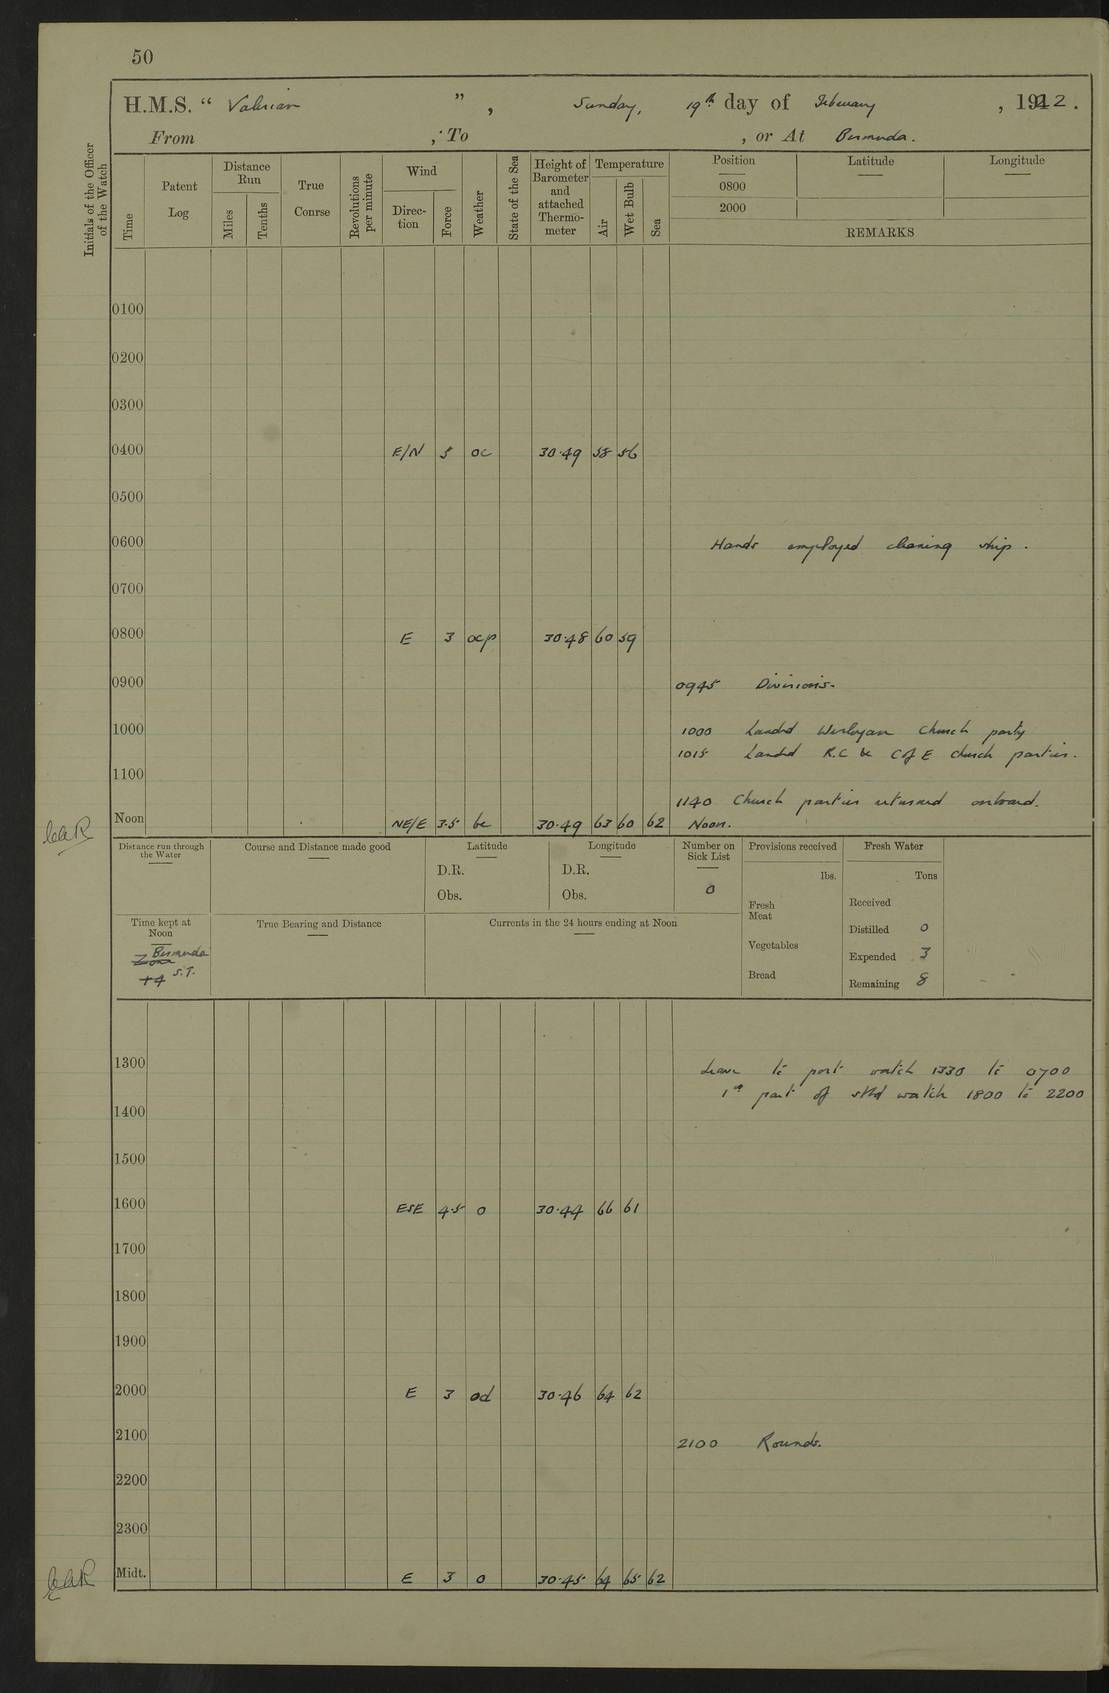 50
H.M.S. " Valerian " , Sunday, 19th day of February , 1922 .
From , To , or At Bermuda .
Initials of the Officer of the Watch
Time
Patent Log
Distance Run
Miles
Tenths
True Conrse
Revolutions per minute
Wind
Direc-tion
Force
Weather
State of the Sea
Height of Barometer and attached Thermo-meter
Temperature
Air
Wet Bulb
Sea
Position Latitude Longitude
0800
2000
REMARKS
0100
0200
0300
0400 E/N 5 oc 30.49 58 56
0500
0600 Hands employed cleaning ship .
0700
0800 E 3 ocp 30.48 60 59
0900 0945 Divisions.
1000 1000 Landed Wesleyan Church party
1015 Landed R.C & C of E church parties.
1100
1140 Church parties returned onboard.
Noon NE/E 3.5 bc 30.49 63 60 62 Noon.
Distance run through the Water
Course and Distance made good
Latitude
D.R.
Obs.
Longitude
D.R.
Obs.
Number on Sick List
0
Provisions received
lbs.
Fresh Meat
Vegetables
Bread
Fresh Water
Tons
Received
Distilled 0
Expended 3
Remaining 8
Time kept at Noon
Zone Bermuda
+4 S.T.
True Bearing and Distance
Currents in the 24 hours ending at Noon
1300 Leave to port watch 1330 to 0700
1st part of stbd watch 1800 to 2200
1400
1500
1600 ESE 4.5 o 30.44 66 61
1700
1800
1900
2000 E 3 od 30.46 64 62
2100 2100 Rounds.
2200
2300
Midt. E 3 o 30.45 64 65 62